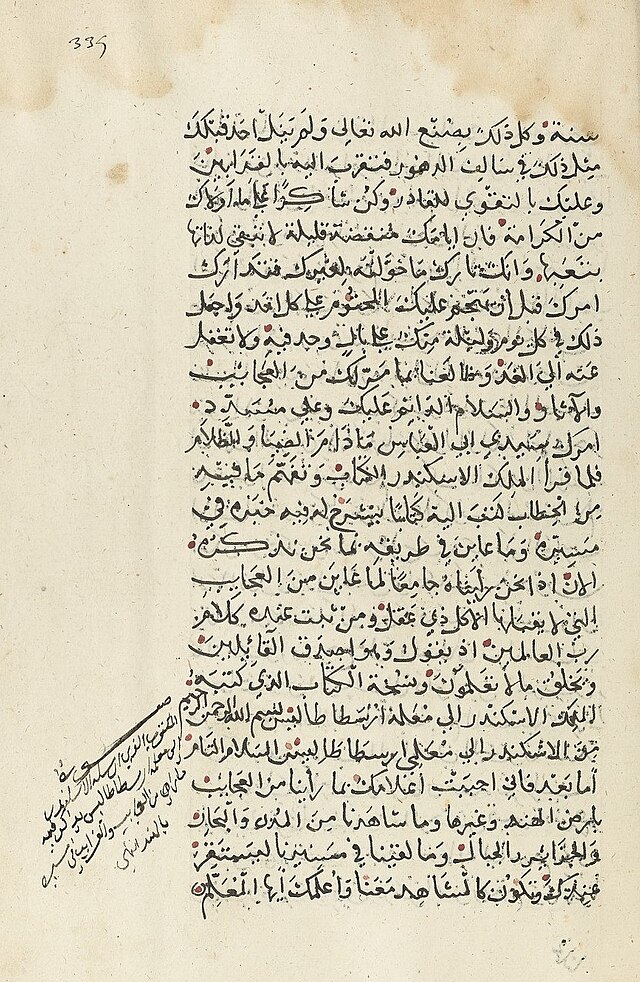 339
سنة وكل ذلك بصنع الله تعالى ولم ينل احد قبلك
مثل ذلك في سالف الدهور فتقرب اليه بالقرابين
وعليك بالتقوي للقادر وكن شاكرًا على ما اولاك
من الكرامة فان ايامك منقضية قليلة لا تبقى لذاتها
بتعبها وانك تارك ما خولته لغيرك فتدارك
امرك قبل أن يتحتم عليك المحتوم على كل احد واجعل
ذلك في كل يوم وليلة منك على بال وجد فيه ولا تغفل
عنه الي الغد وطالعنا بما يمر بك من العجايب
والسلام الدايم عليك وعلي مستمد
امرك سيدي اب العباس ما دامر الضيا والظلام
فلما قرأ الملك الاسكندر الكتاب وتفهم ما فيه
من الخطاب كتب اليه كتابا يشرح له فيه خبره في
مسيره وما عاين في طريقه بما نحن نذكره
الان اذ نحن رأيناه جامعًا لما عاين من العجايب
التي لا يقبلها الا كل ذي عقل ومن ثبت عنده كلام
رب العالمين اذ يقول وهو اصدق القائلين
ويخلق ما لا تعلمون ونسخة الكتاب الذي كتبه
الملك الاسكندر الي معلمه ارسطاطاليس بسم الله الرحمن الرحيم
من الاسكندر الي معلمي ارسطاطاليس السلام التام
أما بعد فاني احببت اعلامك بما رأينا من العجايب
بارض الهند وغيرها وما شاهدنا من المدن والبحار
والجزاير والجبال وما لقينا في مسيرنا ليستقر
عندك وتكون كالمشاهد معنا وأعلمك أيها المعلم